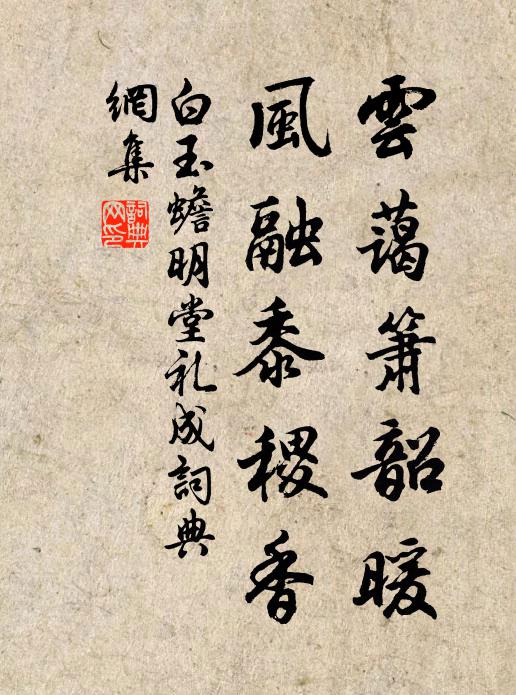 雲藹簫韶暖
風融黍稷香
白玉蟾明堂礼成詞典
網集
詞典网印